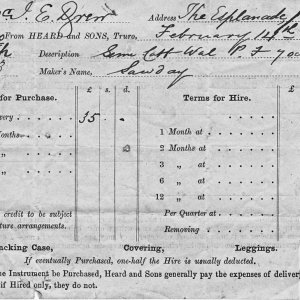 J. E. Drew Address The Esplanade
From HEARD and SONS, Truro, February 14th
Description Sem Cott Wal P. F
Maker's Name, Sawday
for Purchase. £ s. d. Terms for Hire. £
very 35 - 1 Month at
Months 2 Months at
„ 3 „ at
„ 6 „ at
„ 12 „ at
credit to be subject Per Quarter at
uture arrangements. Removing
acking Case, Covering, Leggings.
If eventually Purchased, one-half the Hire is usually deducted.
he Instrument be Purchased, Heard and Sons generally pay the expenses of deliver
if Hired only, they do not.